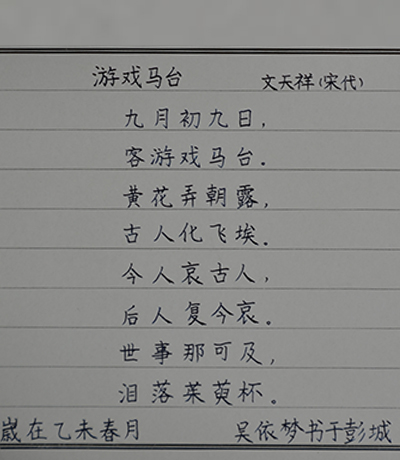 游戏马台 文天祥(宋代)
九月初九日,
客游戏马台.
黄花弄朝露,
古人化飞埃.
今人哀古人,
后人复今哀。
世事那可及,
泪落茱萸杯。
嵗在乙未春月 吴依梦书于彭城